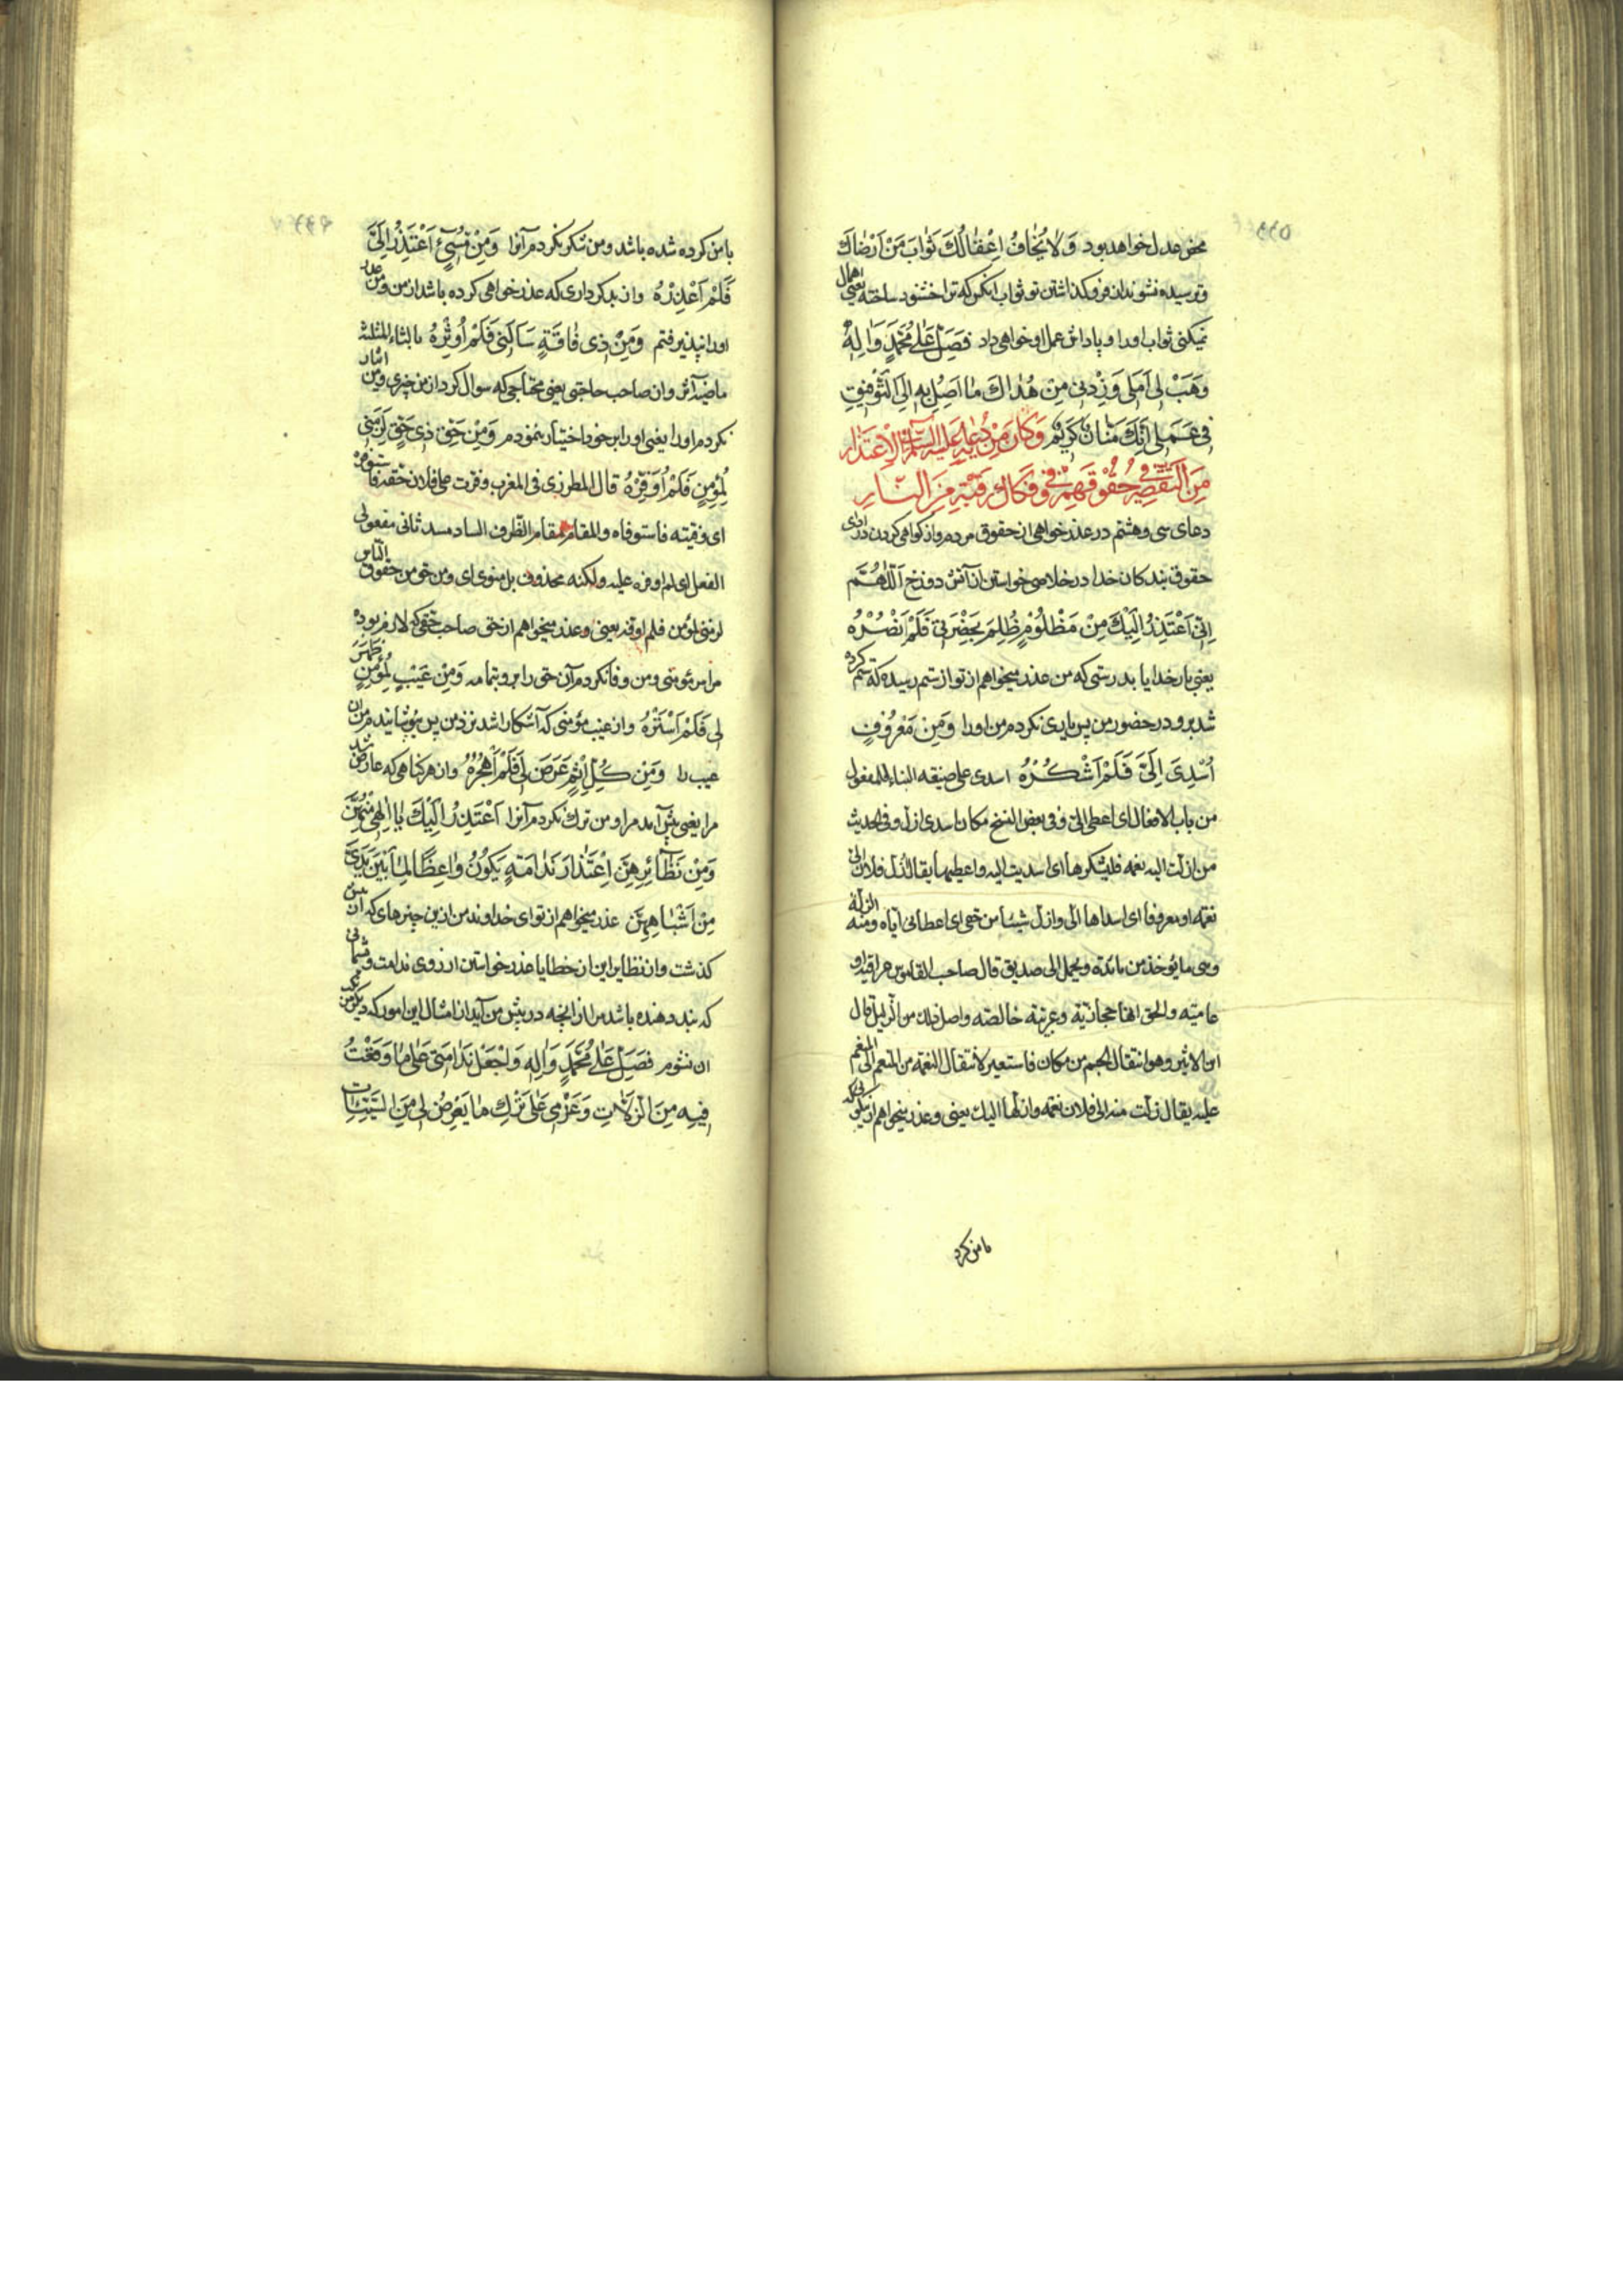 محض عدل خواهد بود وَلَا يُخَافُ اِغْفَالُكَ ثَوَابَ مَنْ اَرْضَاكَ
و ترسیده نشوند از فرو گذاشتن تو ثواب آنکس که ترا خشنود ساخته یعنی اهمال
نمیکنی ثواب او را و پاداش عمل او خواهی داد فَصَلِّ عَلٰى مُحَمَّدٍ وَاٰلِهِ
وَهَبْ لِى اَمَلِى وَزِدْنِى مِنْ هُدَاكَ مَا اَصِلُ بِهِ اِلَى التَّوْفِيقِ
فِى عَمَلِى اِنَّكَ مَنَّانٌ كَرِيْمٌ وَكَانَ مِنْ دُعَائِهِ عَلَيْهِ السَّلَامُ فِى الْاِعْتِذَارِ
مِنَ التَّقْصِيْرِ فِى حُقُوْقِهِمْ وَفِى فَكَاكِ رَقَبَتِهِ مِنَ النَّارِ
دعای سی و هشتم در عذر خواهی از حقوق مردم و از کوتاهی کردن در ادای
حقوق بندکان خدا در خلاصی خواستن از آتش دوزخ اَللّٰهُمَّ
اِنِّى اَعْتَذِرُ اِلَيْكَ مِنْ مَظْلُوْمٍ ظُلِمَ بِحَضْرَتِى فَلَمْ اَنْصُرْهُ
یعنی بار خدایا بدرستی که من عذر میخواهم از تو از ستم رسیده که ستم کرده
شد برو در حضور من پس یاری نکردم من او را وَمِنْ مَعْرُوْفٍ
اُسْدِىَ اِلَىَّ فَلَمْ اَشْكُرْهُ اسدی علی صیغه البناء للمفعول
من باب الافعال ای اعطی الیّ و فی بعض النسخ مکان اسدی ازل و فی الحدیث
من ازلت الیه نعمه فلیشکرها ای اسدیت الیه و اعطیها یقال ازل فلان الیّ
نعمه او معروفا ای اسداها الیّ و ازل شیئا من حقی ای اعطانی ایاه و منه الزلة
و هی ما یؤخذ من مائدة و یحمل الی صدیق قال صاحب القاموس عراقیة او
عامیّه و الحق انها حجازیّة و عربیّة خالصة و اصل ذلک من الزلیل قال
ابن الاثیر و هو انتقال الجسم من مکان فاستعیر لانتقال النعمة من المنعم الی المنعم
علیه یقال زلت منه الی فلان نعمة و ازلها الیک یعنی و عذر میخواهم از نیکوئی که
با من کرد
با من کرده شده باشد و من شکر نکردم آنرا وَمِنْ مُسِىْءٍ اَعْتَذَرَ اِلَىَّ
فَلَمْ اَعْذِرْهُ و از بدکرداری که عذر خواهی کرده باشد از من و من عذر
او را نپذیرفتم وَمِنْ ذِى فَاقَةٍ سَاَلَنِى فَلَمْ اُوْثِرْهُ بالثاء المثلثه
و از صاحب حاجتی یعنی محتاجی که سوال کرد از من چیزی و من ایثار
نکردم او را یعنی او را بر خود اختیار ننمودم وَمِنْ حَقِّ ذِى حَقٍّ لَزِمَنِى
لِمُؤْمِنٍ فَلَمْ اُوَفِّرْهُ قال المطرزی فی المغرب وفرت علی فلان حقه فاستوفره
ای وفیته فاستوفاه و المقام مقام الظرف الساد مسد ثانی مفعولی
الفعل ای لم اوفره علیه و لکنه محذوف بل منوی ای و من حق من حقوق الناس
لزمنی لمؤمن فلم اوفره یعنی و عذر میخواهم از حق صاحب حقی که لازم بود
مرا من مؤمنی و من وفا نکردم آن حق را برو بتمامه وَمِنْ عَيْبِ مُؤْمِنٍ ظَهَرَ
لِى فَلَمْ اَسْتُرْهُ و از عیب مؤمنی که آشکارا شد نزد من پس نپوشانیدم من آن
عیب را وَمِنْ كُلِّ اِثْمٍ عَرَضَ لِى فَلَمْ اَهْجُرْهُ و از هر کناهی که عارض شد
مرا یعنی پیش آمد مرا و من ترک نکردم آنرا اَعْتَذِرُ اِلَيْكَ يَا اِلٰهِى مِنْهُنَّ
وَمِنْ نَظَائِرِهِنَّ اِعْتِذَارَ نَدَامَةٍ يَكُوْنُ وَاعِظًا لِمَا بَيْنَ يَدَىَّ
مِنْ اَشْبَاهِهِنَّ عذر میخواهم از تو ای خداوند من ازین چیزهای که از من
کذشت و از نظایر این از خطایا عذر خواستن از روی ندامت و پشیمانی
که پند دهنده باشد مرا از انچه در پیش من آید از امثال این امور که دیگر من
ان نشوم فَصَلِّ عَلٰى مُحَمَّدٍ وَاٰلِهِ وَاجْعَلْ نَدَامَتِى عَلٰى مَا وَقَعْتُ
فِيْهِ مِنَ الزَّلَّاتِ وَعَزْمِى عَلٰى تَرْكِ مَا يَعْرِضُ لِى مِنَ السَّيِّئَاتِ